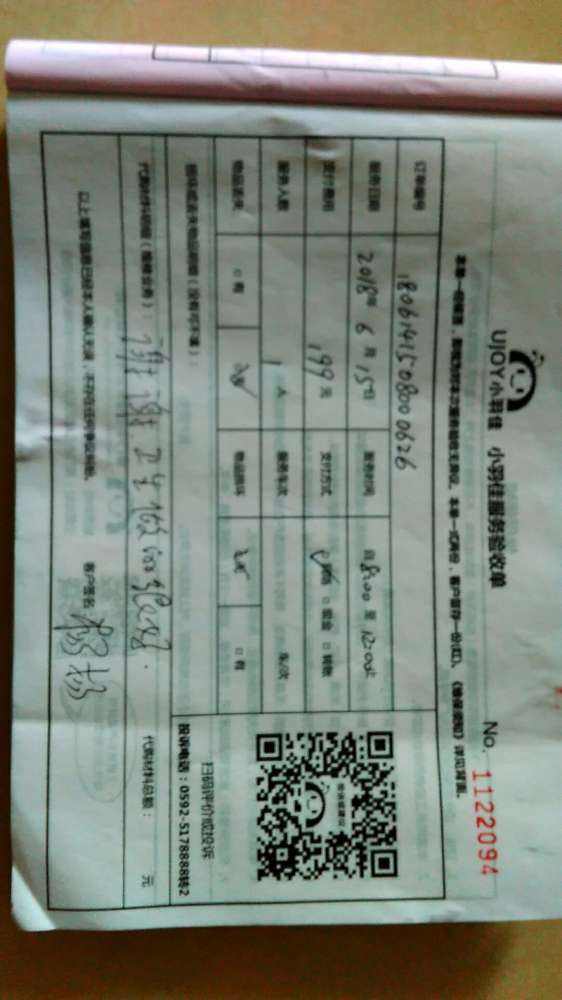 UJOY小羽佳 小羽佳服务验收单
No. 1122094
本单一经填写，即视为对本次服务验收无异议。本单一式两份，客户留存一份(红)。《验收须知》详见背面。
订单编号 1806141508000626
服务日期 2018年 6月 15日 服务时间 自 8:00 至 12:00止
应付费用 199元 支付方式 ☑网络 □现金 □转账
服务人数 1人 服务车次 车/次
物品丢失 □有 ☑无 物品损坏 ☑无 □有
损坏或丢失物品明细（没有可不填）：
扫码评价或投诉
投诉电话：0592-5178888转2
代购材料明细（维修业务）： 谢谢 卫生做的很好.
代购材料总额： 元
以上填写信息已经本人确认无误，不存在任何争议问题。 客户签名